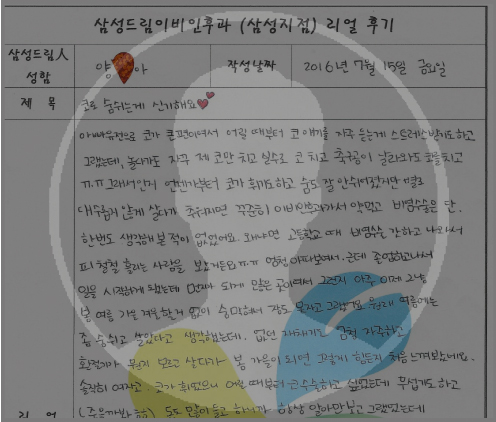 삼성드림이비인후과 (삼성지점) 리얼 후기
삼성드림人 성함
양 아
작성날짜
2016년 7월 15일 금요일
제 목
코로 숨쉬는게 신기해요💕
아빠유전으로 코가 큰편이여서 어릴 때부터 코 얘기를 자주 듣는게 스트레스받기도하고
그랬는데, 놀다가도 자꾸 제 코만 치고 실수로 코 치고 축구공이 날라와도 코를치고
ㅠㅠ 그래서인지 언젠가부터 코가 휘기도하고 숨도 잘 안쉬어졌지만 별로
대수롭지 않게 살다가 추워지면 꾸준히 이비인후과가서 약먹고 비염수술은 단.
한번도 생각해 본 적이 없었어요. 왜냐면 고등학교 때 비염수술 간하고 나와서
피 철철 흘리는 사람을 보았거든요ㅠㅠ 엄청 아파보여서. 근데 졸업하고나서
일을 시작하게 됐는데 먼지가 되게 많은 곳이여서 그런지 아주 이제 그냥
봄 여름 가을 겨울 할거 없이 숨막혀서 잠도 못자고 그랬어요. 원래 여름에는
좀 숨쉬고 살았다고 생각했는데. 집안 자체가 엄청 가족하고
환절기가 뭔지 모르고 살다가 봄 가을이 되면 그렇게 힘든지 처음느껴봤네요.
솔직히 여자고. 코가 휘었으니 어릴 때부터 코수술하고 싶었는데 무섭기도 하고
(주준까봐ㅎㅎ) 돈도 많이 들고 하니까 항상 알아만보고 그랬었는데
리 어